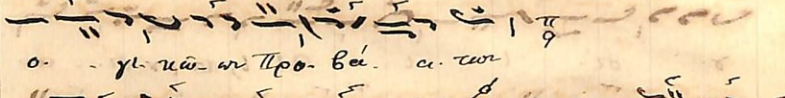 ο. . γι κῶ. ων Προ. βά. α. των